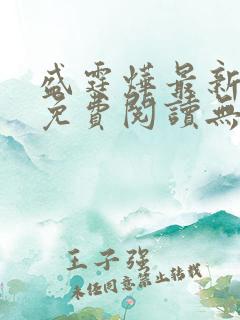 盛霆燁最新
免費閱讀無
王子强
未经同意禁止转载